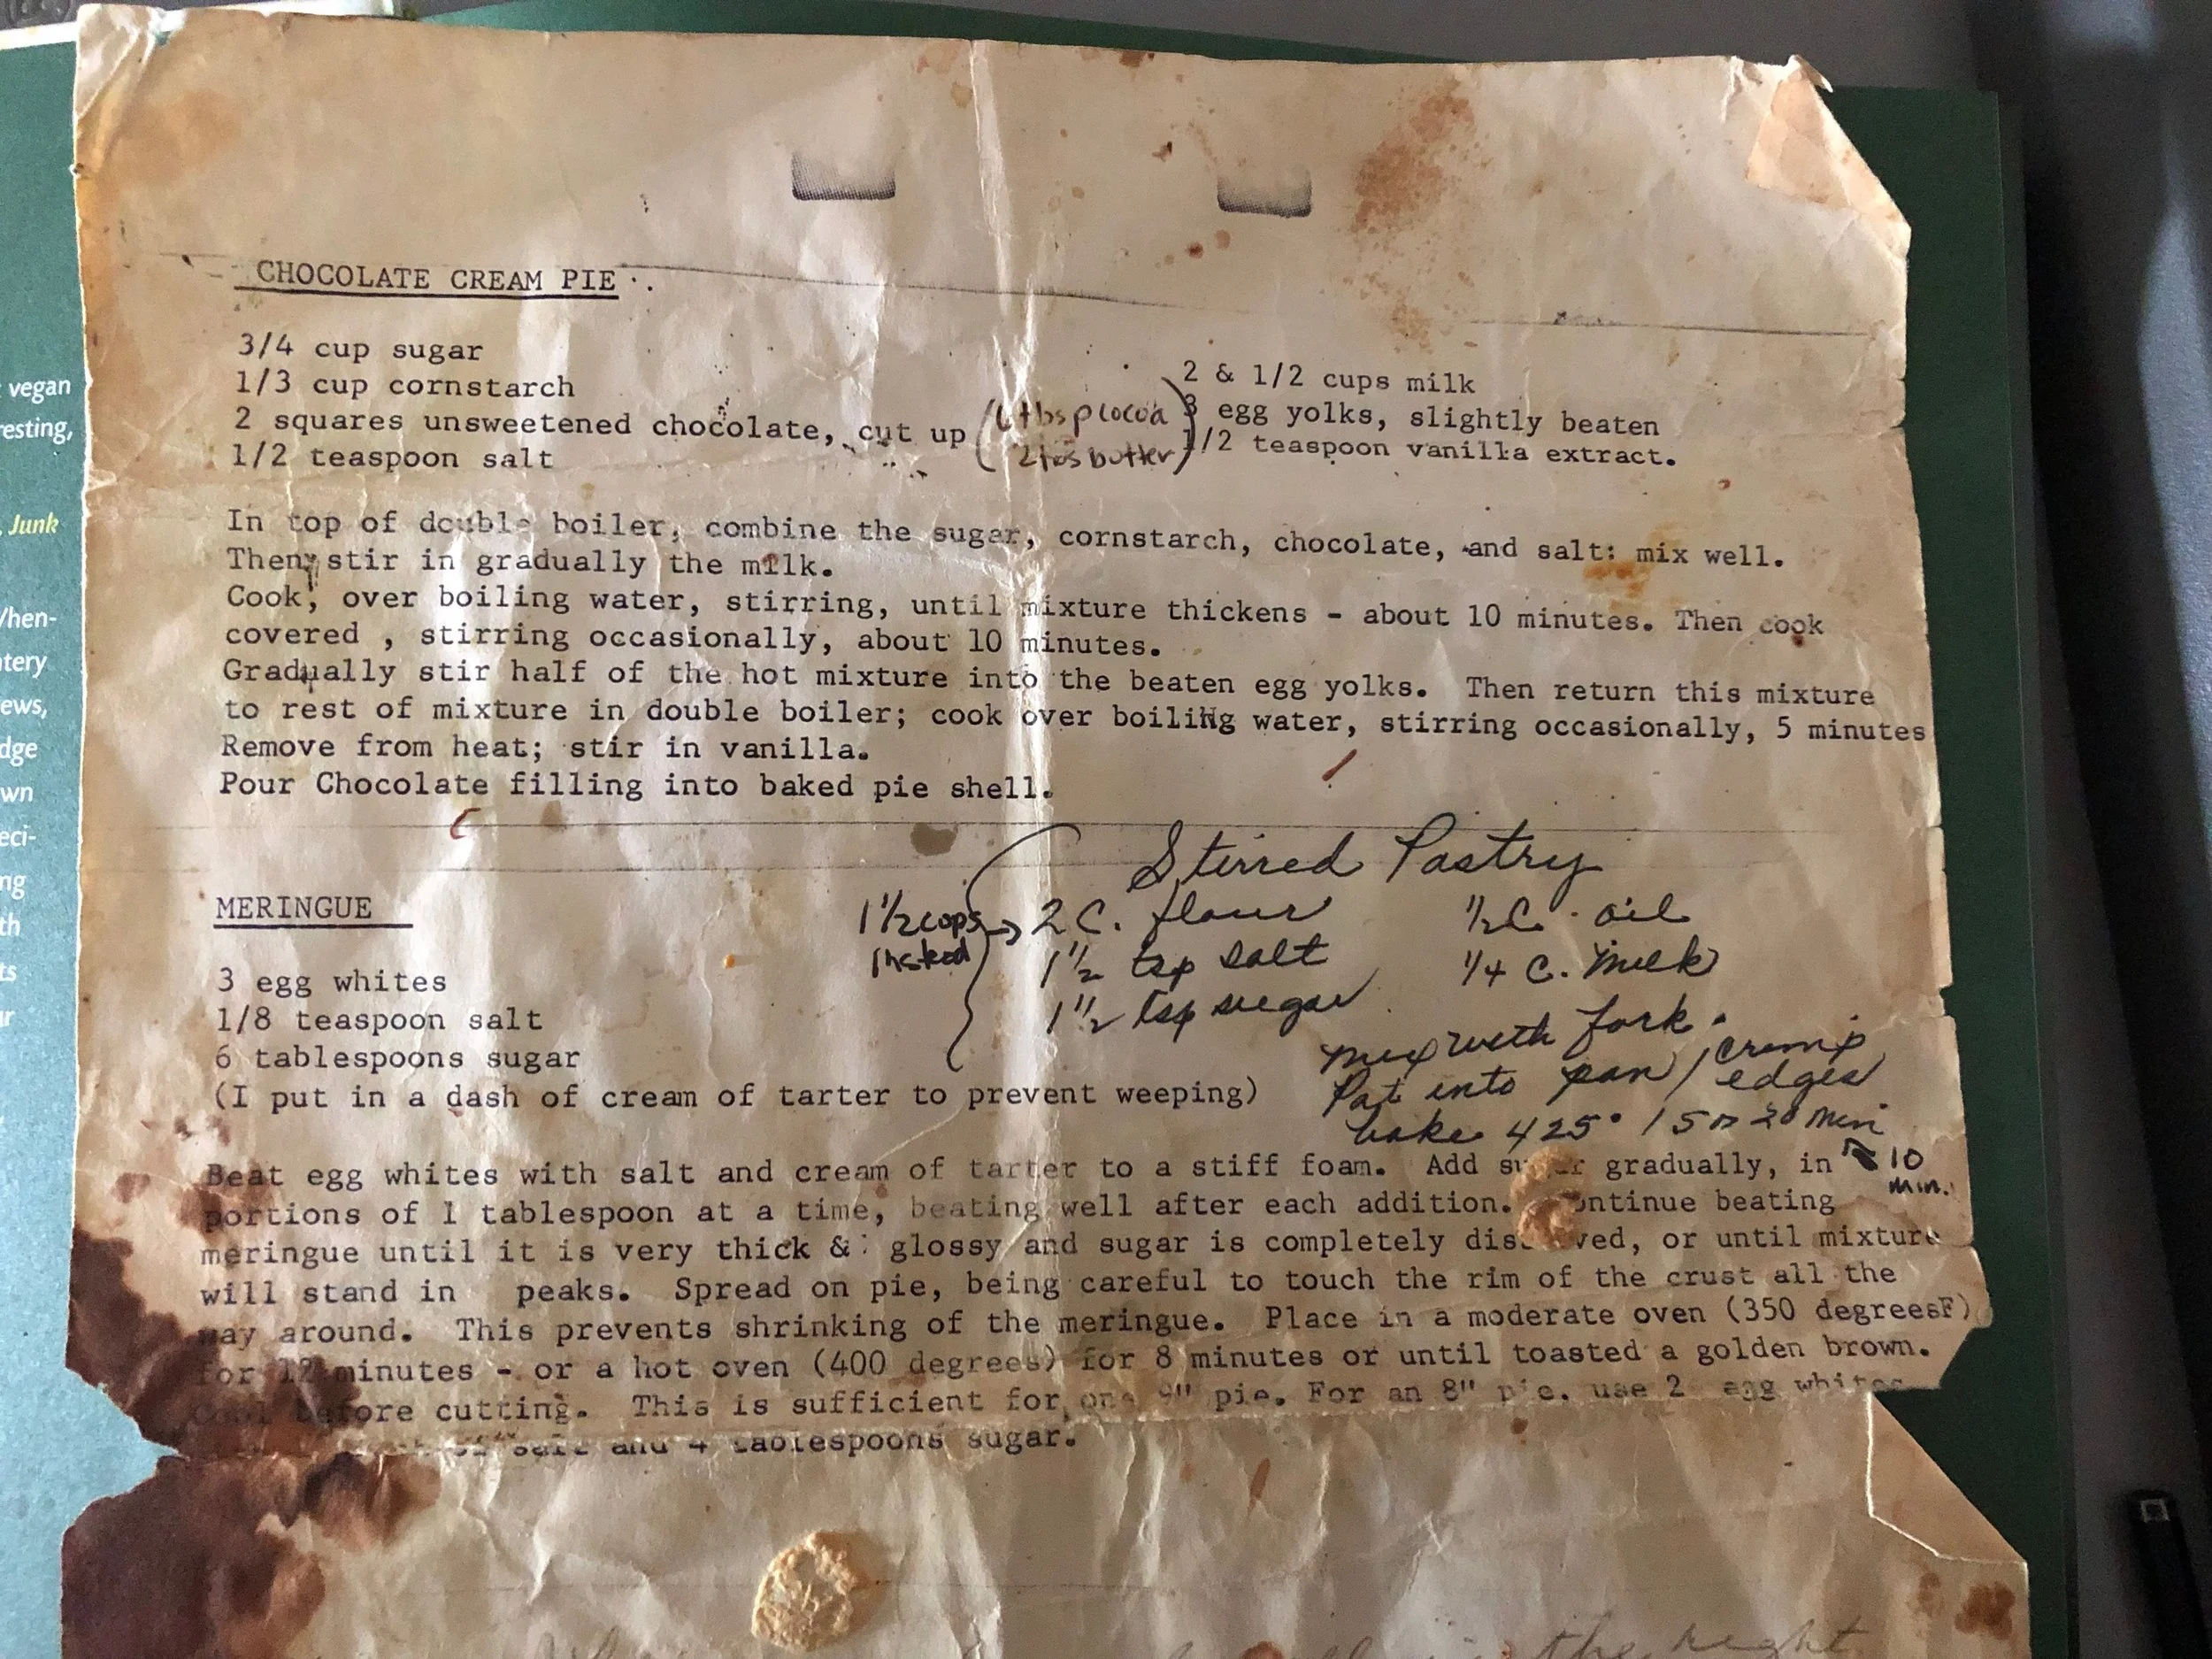 CHOCOLATE CREAM PIE
3/4 cup sugar
1/3 cup cornstarch
2 squares unsweetened chocolate, cut up
1/2 teaspoon salt
(6 tbsp cocoa
2 tbs butter)
2 & 1/2 cups milk
3 egg yolks, slightly beaten
1/2 teaspoon vanilla extract.
In top of double boiler, combine the sugar, cornstarch, chocolate, and salt: mix well.
Then stir in gradually the milk.
Cook, over boiling water, stirring, until mixture thickens - about 10 minutes. Then cook
covered , stirring occasionally, about 10 minutes.
Gradually stir half of the hot mixture into the beaten egg yolks. Then return this mixture
to rest of mixture in double boiler; cook over boiling water, stirring occasionally, 5 minutes
Remove from heat; stir in vanilla.
Pour Chocolate filling into baked pie shell.
Stirred Pastry
1 1/2 cups instead → 2 C. flour
1 1/2 tsp salt
1 1/2 tsp sugar
1/2 C. oil
1/4 C. Milk
Mix with fork.
Pat into pan / crimp edges
bake 425° 15 or 20 min
10 min.
MERINGUE
3 egg whites
1/8 teaspoon salt
6 tablespoons sugar
(I put in a dash of cream of tarter to prevent weeping)
Beat egg whites with salt and cream of tarter to a stiff foam. Add sugar gradually, in
portions of 1 tablespoon at a time, beating well after each addition. Continue beating
meringue until it is very thick & glossy and sugar is completely dissolved, or until mixture
will stand in peaks. Spread on pie, being careful to touch the rim of the crust all the
way around. This prevents shrinking of the meringue. Place in a moderate oven (350 degreesF)
for 12 minutes - or a hot oven (400 degrees) for 8 minutes or until toasted a golden brown.
Cool before cutting. This is sufficient for one 9" pie. For an 8" pie, use 2 egg whites
salt and 4 tablespoons sugar.
the night
vegan
resting,
Junk
ews,